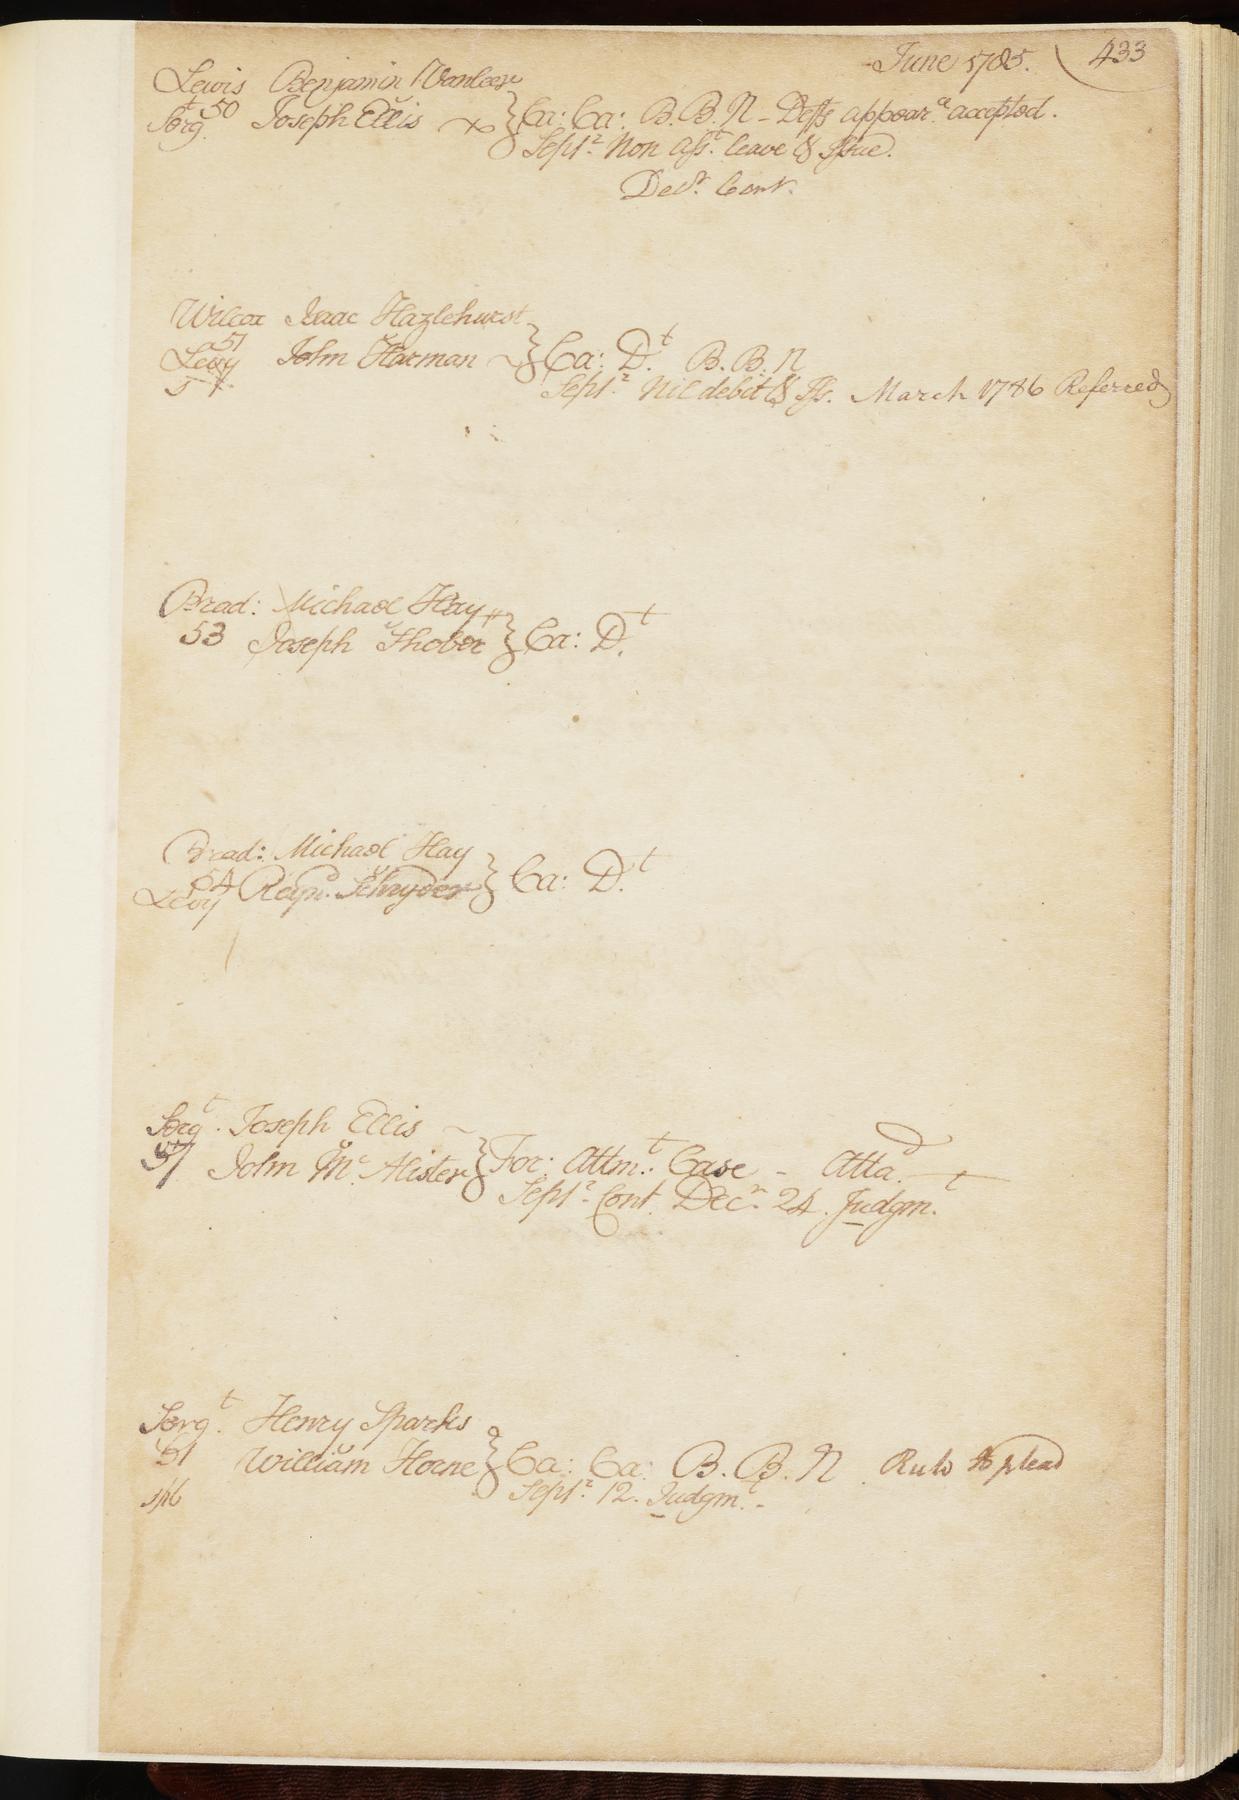 June 1785. 433
Lewis Benjamin Vanleer
50 Joseph Ellis Ca: Ca: B. B. N - Defts appear.ce accepted.
Sergt. Septr. Non Asst. leave & Issue.
Decr. Cont.
Wilcox Isaac Hazlehurst
57 John Harman Ca: Dt. B. B. N
Levy Septr. Nil debit & Iss. March 1786 Referred
Brad: Michael Hay
53 Joseph Thober Ca: Dt.
Brad: Michael Hay
54 Schryder Ca: Dt.
Levy
Sergt. Joseph Ellis
57 John Mc. Alister For: Attmt: Case - Attad.
Septr. Cont. Decr. 24. Judgmt.
Sergt. Henry Sparks
61 William Horne Ca: Ca: B. B. N. Rule to plead
Septr. 12. Judgmt. -